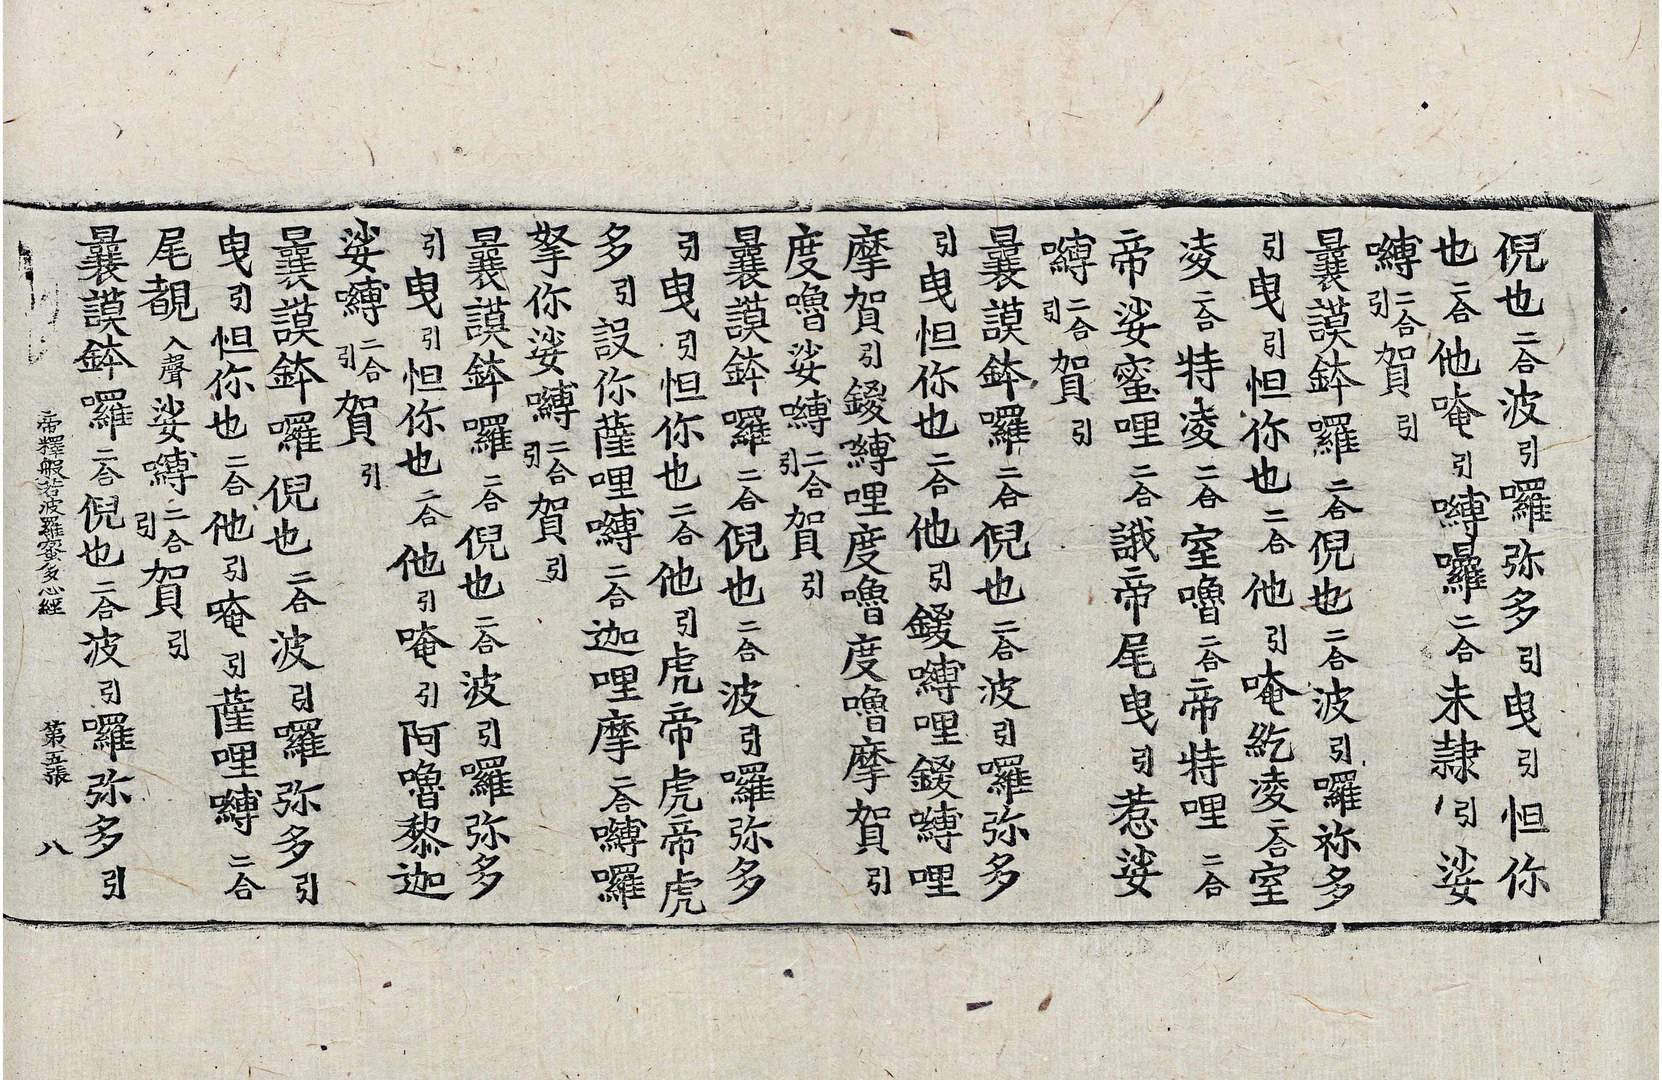 倪也二合波引囉弥多引曳引怛你
也二合他唵引嚩囉二合未隷引娑
嚩二合引賀引
曩謨鉢囉二合倪也二合波引囉祢多
引曳引怛你也二合他引唵紇凌二合室
凌二合特凌二合室嚕二合帝特哩二合
帝娑蜜哩二合誐帝尾曳引惹娑
嚩二合引賀引
曩謨鉢囉二合倪也二合波引囉弥多
引曳怛你也二合他引鍐嚩哩鍐嚩哩
摩賀引鍐嚩哩度嚕度嚕摩賀引
度嚕娑嚩二合引賀引
曩謨鉢囉二合倪也二合波引囉弥多
引曳引怛你也二合他引虎帝虎帝虎
多引設你薩哩嚩二合迦哩摩二合嚩囉
拏你娑嚩二合引賀引
曩謨鉢囉二合倪也二合波引囉弥多
引曳引怛你也二合他引唵引阿嚕黎迦
娑嚩二合引賀引
曩謨鉢囉倪也二合波引囉弥多引
曳引怛你也二合他引唵引薩哩嚩二合
尾覩入聲娑嚩二合引賀引
曩謨鉢囉二合倪也二合波引囉弥多引
帝釋般若波羅蜜多心經 第五張 八